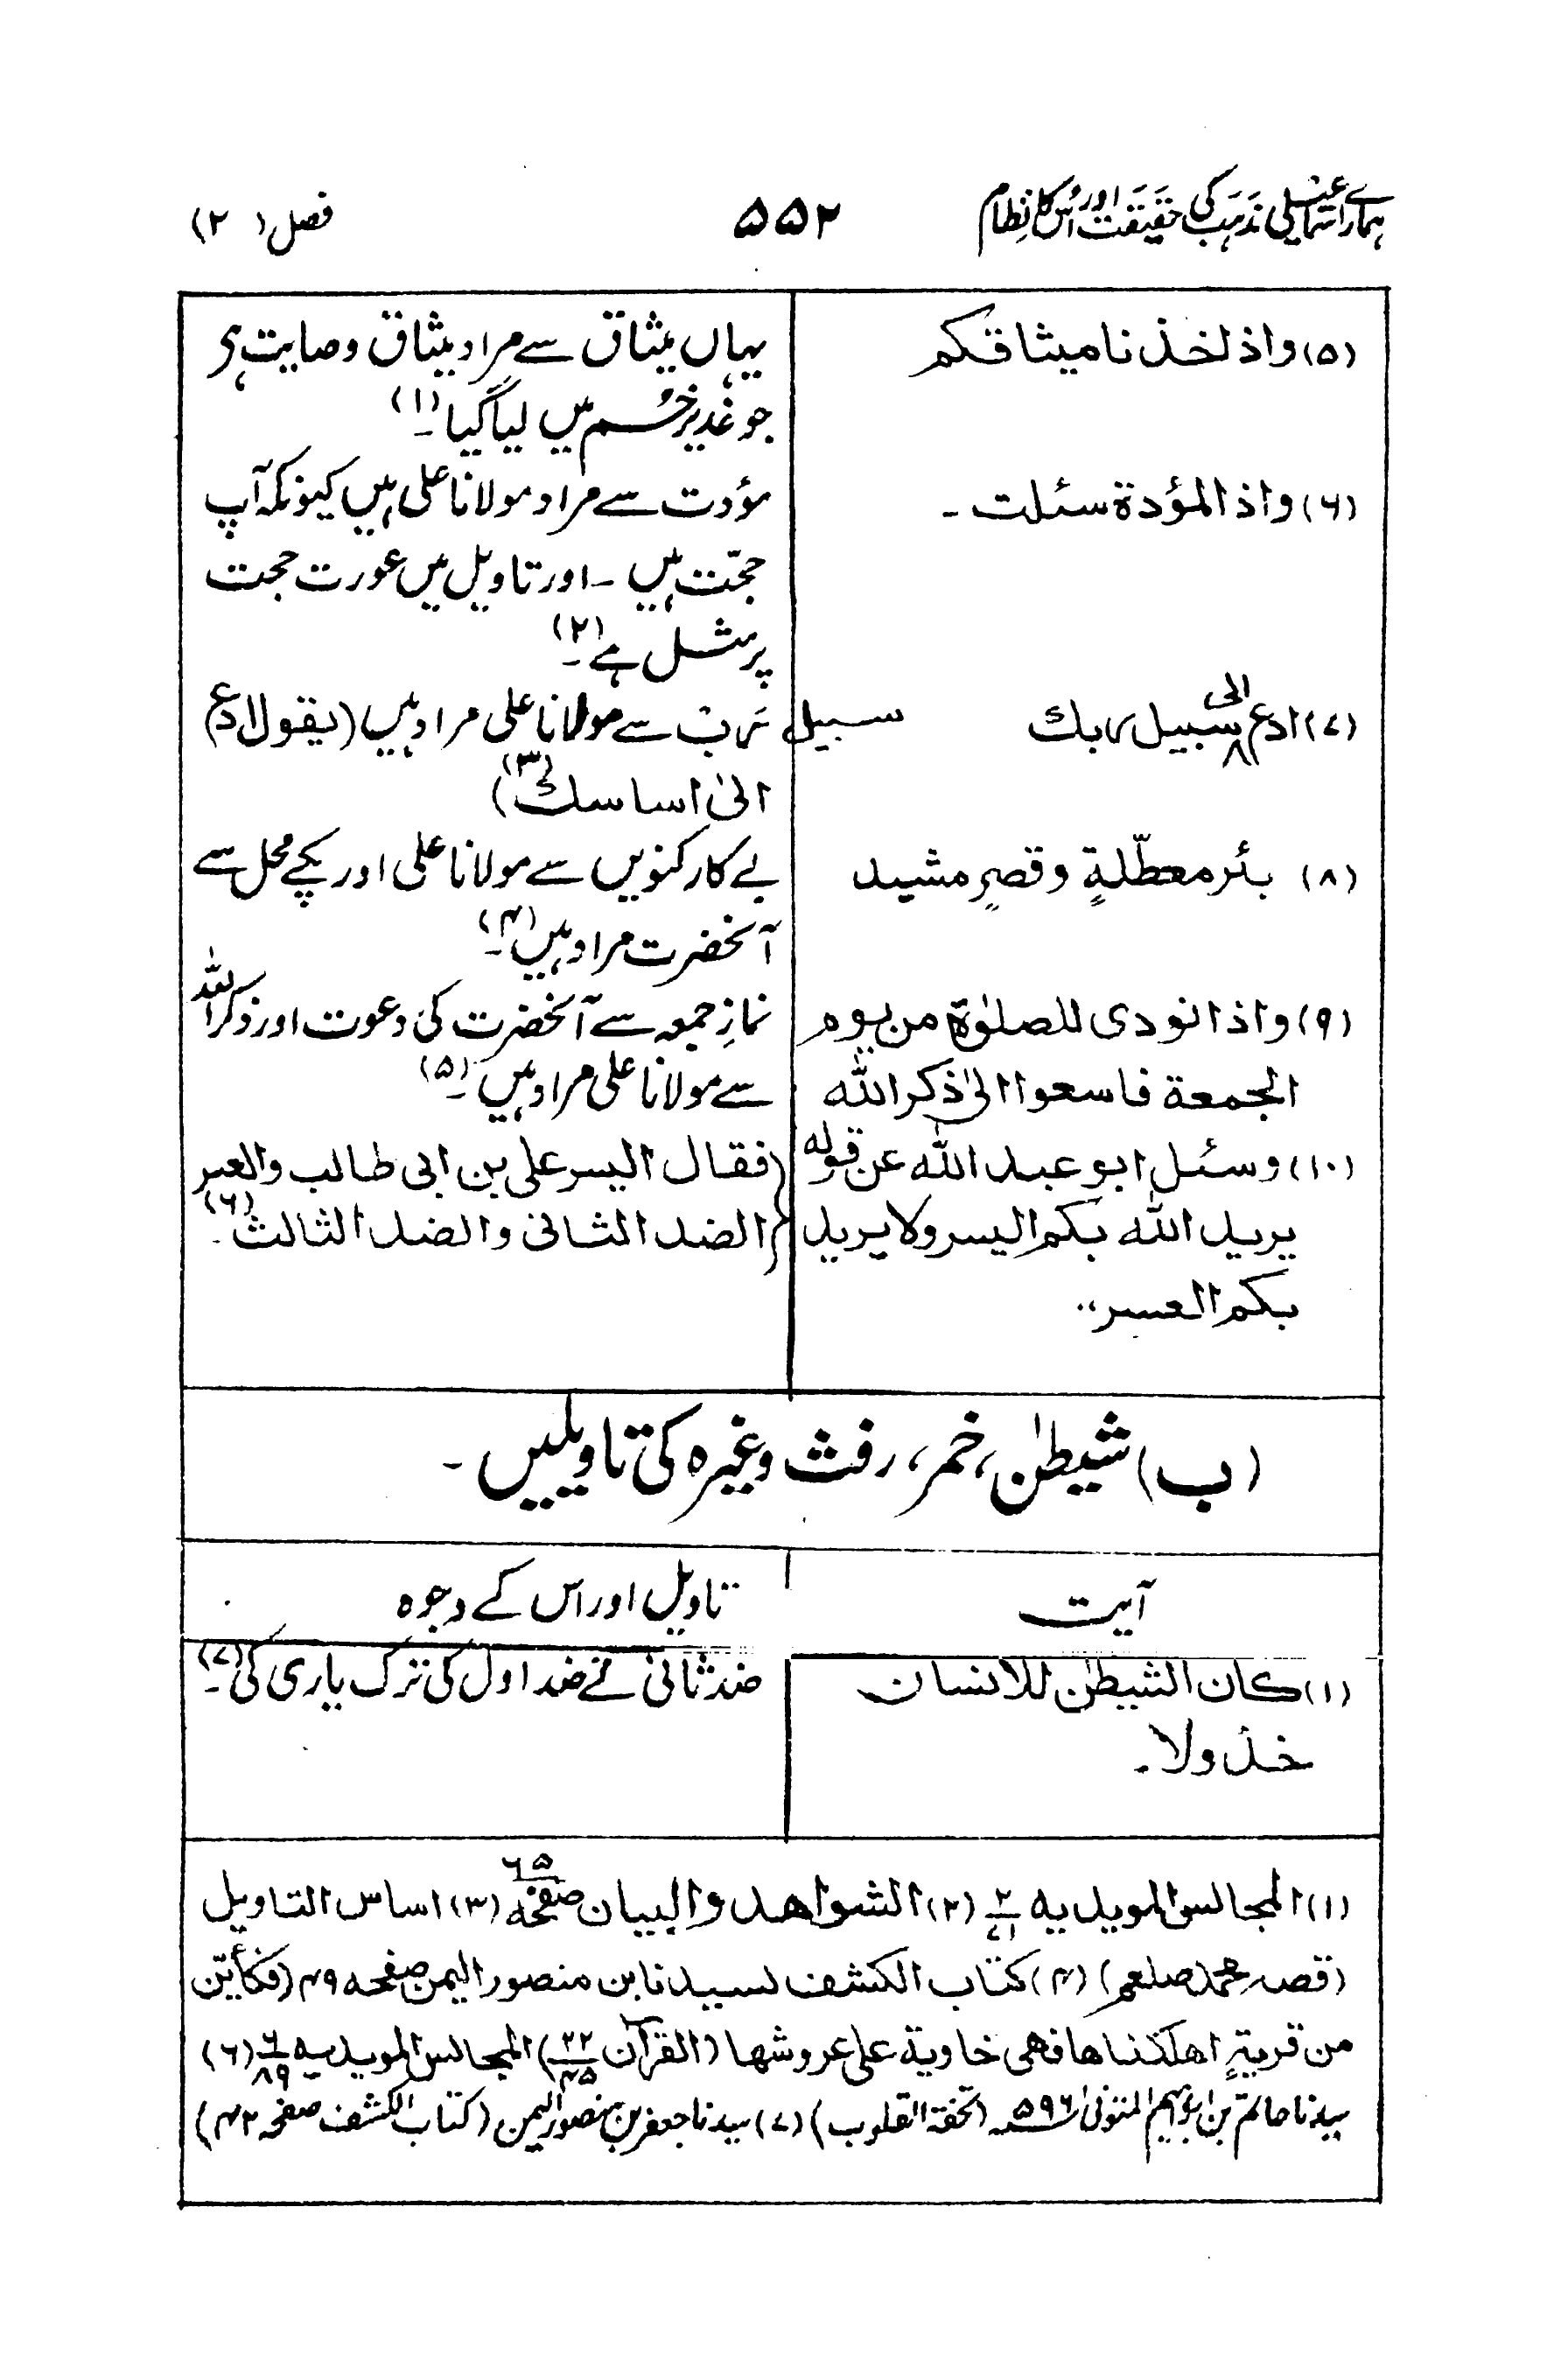 ہمارے اسماعیلی مذہب کی حقیقت اور اُس کا نظام
۵۵۲
فصل (۲)
(۵) واذ اخذنا میثاقکم
یہاں میثاق سے مراد میثاق وصایت ہی
جو غدیر خُم میں لیا گیا۔ (۱)
(۶) واذا المؤدۃ سئلت۔
مؤدت سے مراد مولانا علی ہیں کیونکہ آپ
حجّت ہیں۔ اور تاویل میں عورت حجت
پر مثل ہے۔ (۲)
(۷) ادع الی سبیل ربك
سبیل رب سے مولانا علی مراد ہیں (یقول ادع
الیٰ اساسك) (۳)
(۸) بئر معطّلۃٍ وقصرٍ مشید
بے کار کنویں سے مولانا علی اور پکے محل سے
آنحضرت مراد ہیں۔ (۴)
(۹) واذا نودی للصلوٰۃ من یوم
الجمعۃ فاسعوا الیٰ ذکر اللّٰہ
نمازِ جمعہ سے آنحضرت کی دعوت اور ذکر اللّٰہ
سے مولانا علی مراد ہیں۔ (۵)
(۱۰) وسئل ابو عبد اللّٰہ عن قولہ
یرید اللّٰہ بکم الیسر ولا یرید
بکم العسر،،
(فقال الیسر علی بن ابی طالب والعسر
الضد الثانی والضد الثالث (۶)۔
(ب) شیطٰن، خمر، رفث وغیرہ کی تاویلیں۔
آیت
تاویل اور اس کے وجوہ
(۱) کان الشیطٰن للانسان
خذولا۔
ضد ثانی نے ضد اول کی ترک یاری کی۔ (۷)
(۱) المجالس المویدیہ ۲/۷۱ (۲) الشواھد والبیان صفحہ ۶۵ (۳) اساس التاویل
(قصہ محمد صلعم) (۴) کتاب الکشف لسیدنا ابن منصور الیمن صفحہ ۴۹ (فکأیّن
من قریۃٍ اھلکناھا فھی خاویۃ علی عروشھا (القرآن ۲۲/۴۵) المجالس المویدیہ ۶/۸۹ (۶)
سیدنا حاتم بن ابراہیم المتوفیٰ ۵۹۶ (تحفۃ القلوب) (۷) سیدنا جعفر بن منصور الیمن (کتاب الکشف صفحہ ۴۲)